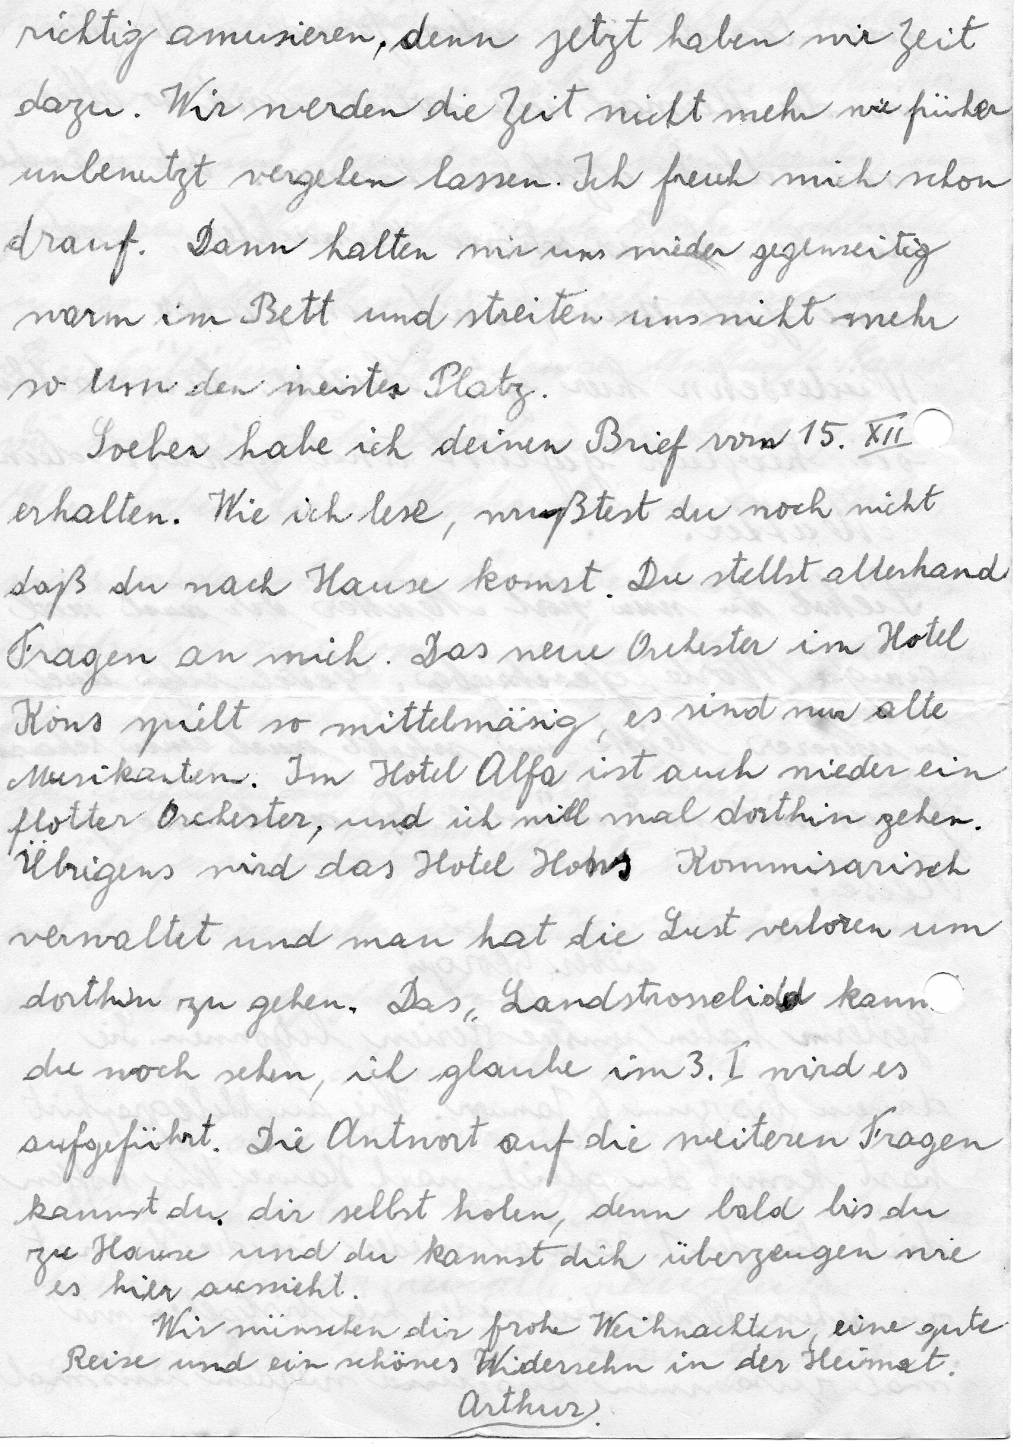 richtig amusieren, denn jetzt haben wir Zeit
dazu. Wir werden die Zeit nicht mehr wie früher
unbenutzt vergehen lassen. Ich freuh mich schon
drauf. Dann halten wir uns wieder gegenseitig
warm im Bett und streiten uns nicht mehr
so um den meisten Platz.
Soeben habe ich deinen Brief vom 15. XII
erhalten. Wie ich lese, wußtest du noch nicht
daß du nach Hause komst. Du stellst allerhand
Fragen an mich. Das neue Orchester im Hotel
Kons spielt so mittelmäsig, es sind nur alte
Musikanten. Im Hotel Alfa ist auch wieder ein
flotter Orchester, und ich will mal dorthin gehen.
Übrigens wird das Hotel Kons Kommisarisch
verwaltet und man hat die Lust verloren um
dorthin zu gehen. Das „ Landstrosselidd kann
du noch sehen, ich glaube im 3. I wird es
aufgeführt. Die Antwort auf die weiteren Fragen
kannst du dir selbst holen, denn bald bis du
zu Hause und du kannst dich überzeugen wie
es hier aussieht.
Wir wünschen dir frohe Weihnachten, eine gute
Reise und ein schönes Widersehn in der Heimat.
Arthur.